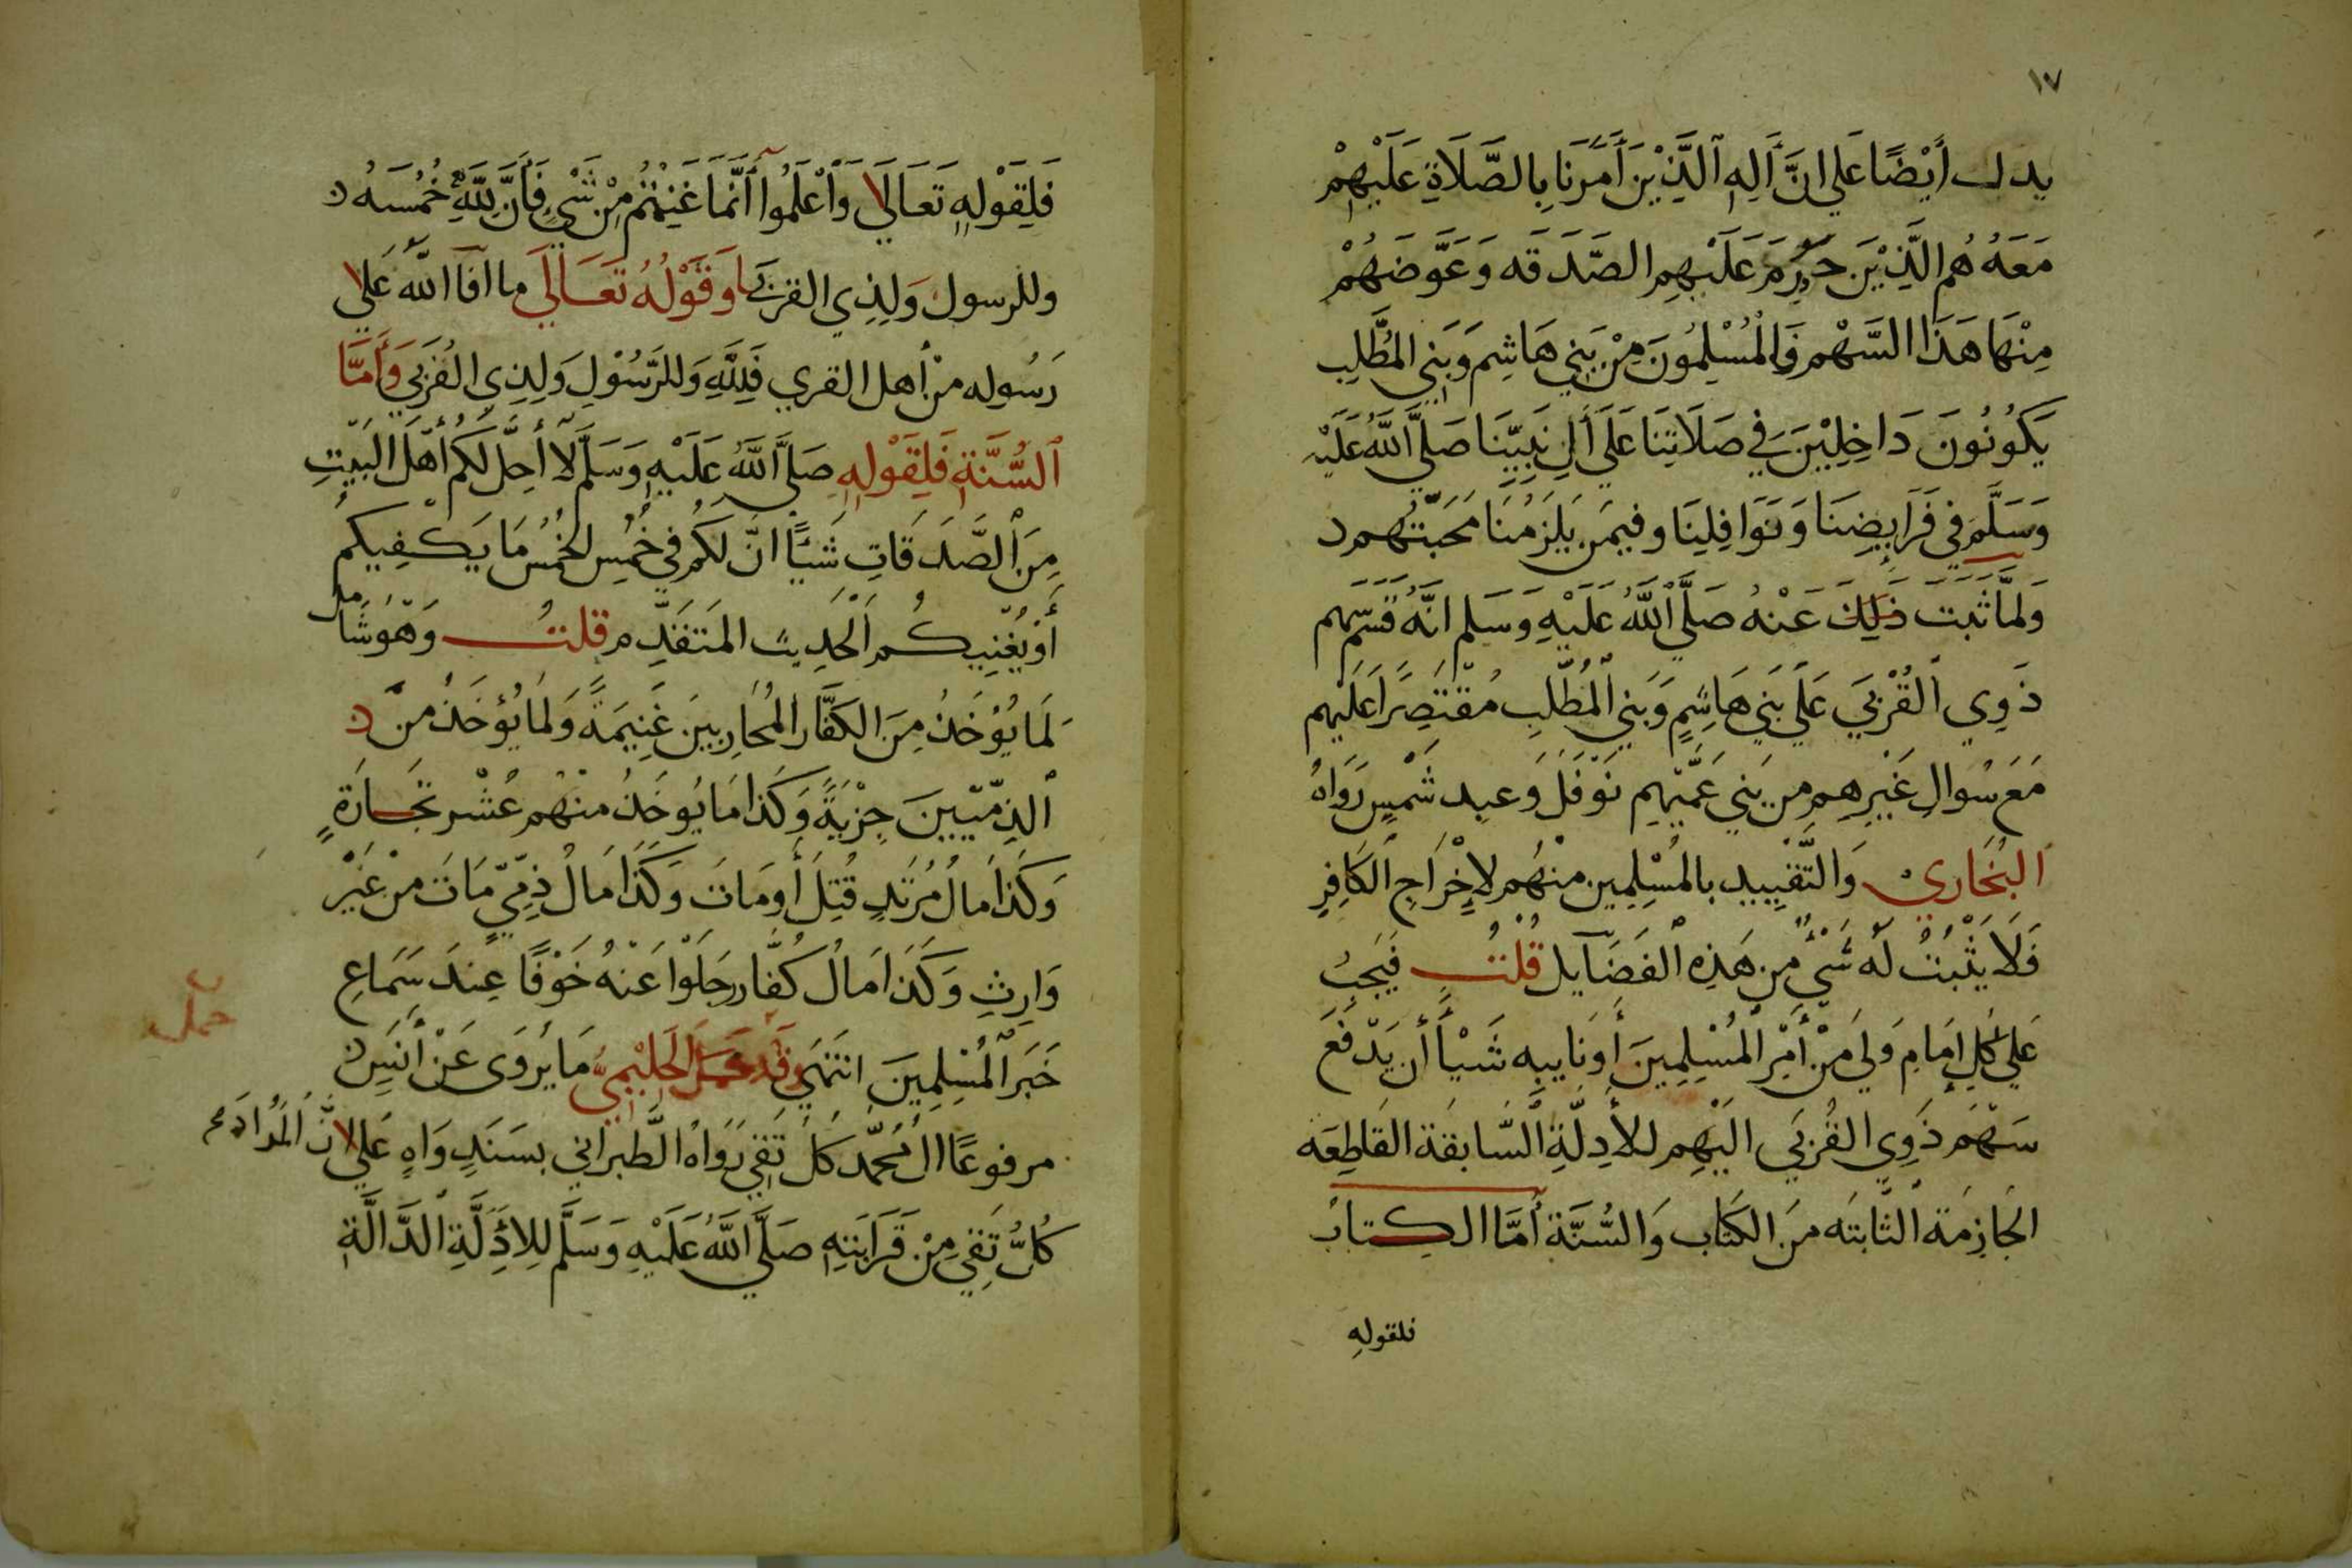 ١٧
يدل أَيْضًا عَلي انَّ اَلِهِ الَّذِيْنَ أَمَرَنَا بِالصَّلَاةِ عَلَيْهِمْ
مَعَهُ هُم الَّذِيْنَ حَرُمَ عَلَيْهِم الصَّدَقه وَعَوَّضَهُمْ
مِنْهَا هَذَا السَّهْم فَالْمُسْلِمُونَ مِنْ بَنِي هَاشِم وَبَنِي المطَّلِب
يَكُونُونَ دَاخِلِيْنَ فِي صَلَاتِنَا عَلَي أَلِ نَبِيِّنَا صَلَّي اللَّهُ عَلَيْه
وَسَلَّمَ فِي فَرَايِضِنَا وَنَوَافِلِنَا وفيمَن يَلزَمُنَا مَحَبَّتُهم
وَلمَّا ثَبَتَ ذَلِكَ عَنْهُ صَلَّي اللَّهُ عَلَيْهِ وَسَلم انَّهُ قَسَّمَ سَهم
ذَوِي الْقُرْبَي عَلَي بَنِي هَاشِمٍ وَبَنِي الْمُطَّلِب مُقْتَصِرًا عَلَيْهِم
مَعَ سُوالِ غَيْرِهِم مِن بَنِي عَمِّهِم نَوْفَل وَعبد شَمْسٍ رَوَاهُ
البُخَاريْ وَالتَّقْيِيد بالمُسْلِمِين منْهُم لاِخْرَاجِ الكَافِرِ
فَلَا يَثْبُتُ لَه شَيْءٌ مِن هَذِه الفَضَآيل قُلْتُ فَيَجِبُ
عَلي كُلِ إمَامٍ وَلِيَ مِنْ أَمْرِ الْمُسْلِمِينَ أَونَايبِه شَيْأً أَن يَدْفَعَ
سَهْمَ ذَوِي القُرْبَي الَيْهِم للأَدِلَّةِ السَّابقَة القَاطِعَه
الجَازِمَة الثَّابتَه مِنَ الكتَاب وَالسُّنَّة أَمَّا الكِتابُ
فلقولهِ
فَلِقَوْلِهِ تَعَالَي وَاعْلَمُوا أَنَّمَا غَنِمْتُم مِنْ شَيْءٍ فَأَنَّ لِلَّهِ خُمُسَهُ
وللرسول وَلِذِي القربَي وَقَوْلُهُ تَعَالَي ما افآ اللَّه عَلي
رَسُوله منْ أهل القري فَلِلَّهِ وَللرَّسُوْلِ وَلِذِي القُرْبَي وَأَمَّا
السُّنَّةِ فَلِقَوْلِهِ صَلَّي اللَّهُ عَلَيْهِ وَسَلَّم لَا أُحِلُّ لَكُم أَهْلَ البَيْتِ
مِنَ الصَّدَقَاتِ شَيْئًا انَّ لَكُمْ فِي خُمُسِ الخُمُسِ مَا يَكْفِيكُمْ
أَوْ يُغْنِيكُم الْحَدِيث المتَقَدِّم قلتُ وَهُوَ شَامل
لَمَا يُوْخَذُ مِنَ الكَفَّار المُحَاربِينَ غَنِيمَةً وَلمَا يُؤخَذُ مِنَ
الذِمِّيّينَ جِزْيَةً وَكَذا مَا يُوخَذُ منْهُم عُشْر تجَارَةٍ
وَكَذَا مالُ مُرْتَدٍ قُتِلَ أَومَاتَ وَكَذَا مَالُ ذِمِّيٍّ مَاتَ منْ غَيْر
وَارِثٍ وَكَذَا مَالُ كُفَّار جَلَوْا عَنْهُ خَوْفًا عِندَ سَمَاعِ
خَبَر الْمُسْلِمِينَ انتَهَي وَقَد حَمَلَ الحَلِيْمِيُّ مَا يُرْوَى عَنْ أَنَسٍ
حمل
مرفوعًا الُ مُحَمَّد كلُ تَقِي رَوَاهُ الطَّبراني بسَنَدٍ وَاهٍ عَلي انَّ الْمُرَادَ
كُلُّ تَقِي مِنْ قَرَابَتِهِ صَلَّي اللَّهُ عَلَيْهِ وَسَلَّم لِلأَدِلَّةِ الدَّالَّةِ